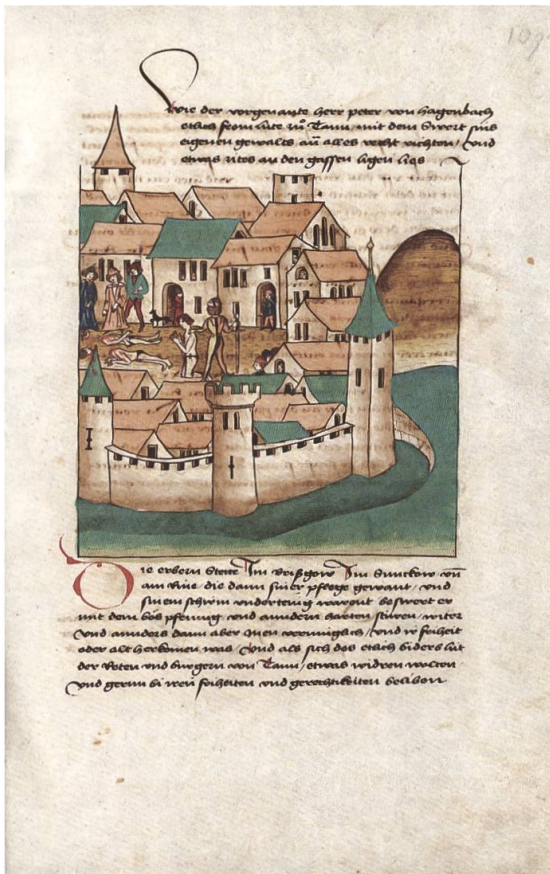 109
Wie der vorgenante herr peter von hagenbach
etlich from lüte zů Tann mit dem Swert sins
eigenen gewalts an alles recht richten / Vnd
etwas zites an den gassen ligen lies
Die erbern Stette Im Brißgow Im Sunckow vnd
am Rine die dann siner pflege gewant / vnd
sinem schirm vndertenig warent beswert er
mit dem bös pfennig vnd anndern harten stüren / witer
Vnd annders dann aber Inen / vnd ir friheit
oder alt herkomen was Vnd als sich des etlich biders lüt
der Reten vnd burgern von Tann / etwas widren wolten
Vnd gernn bi iren friheiten vnd gerechtikeiten beliben